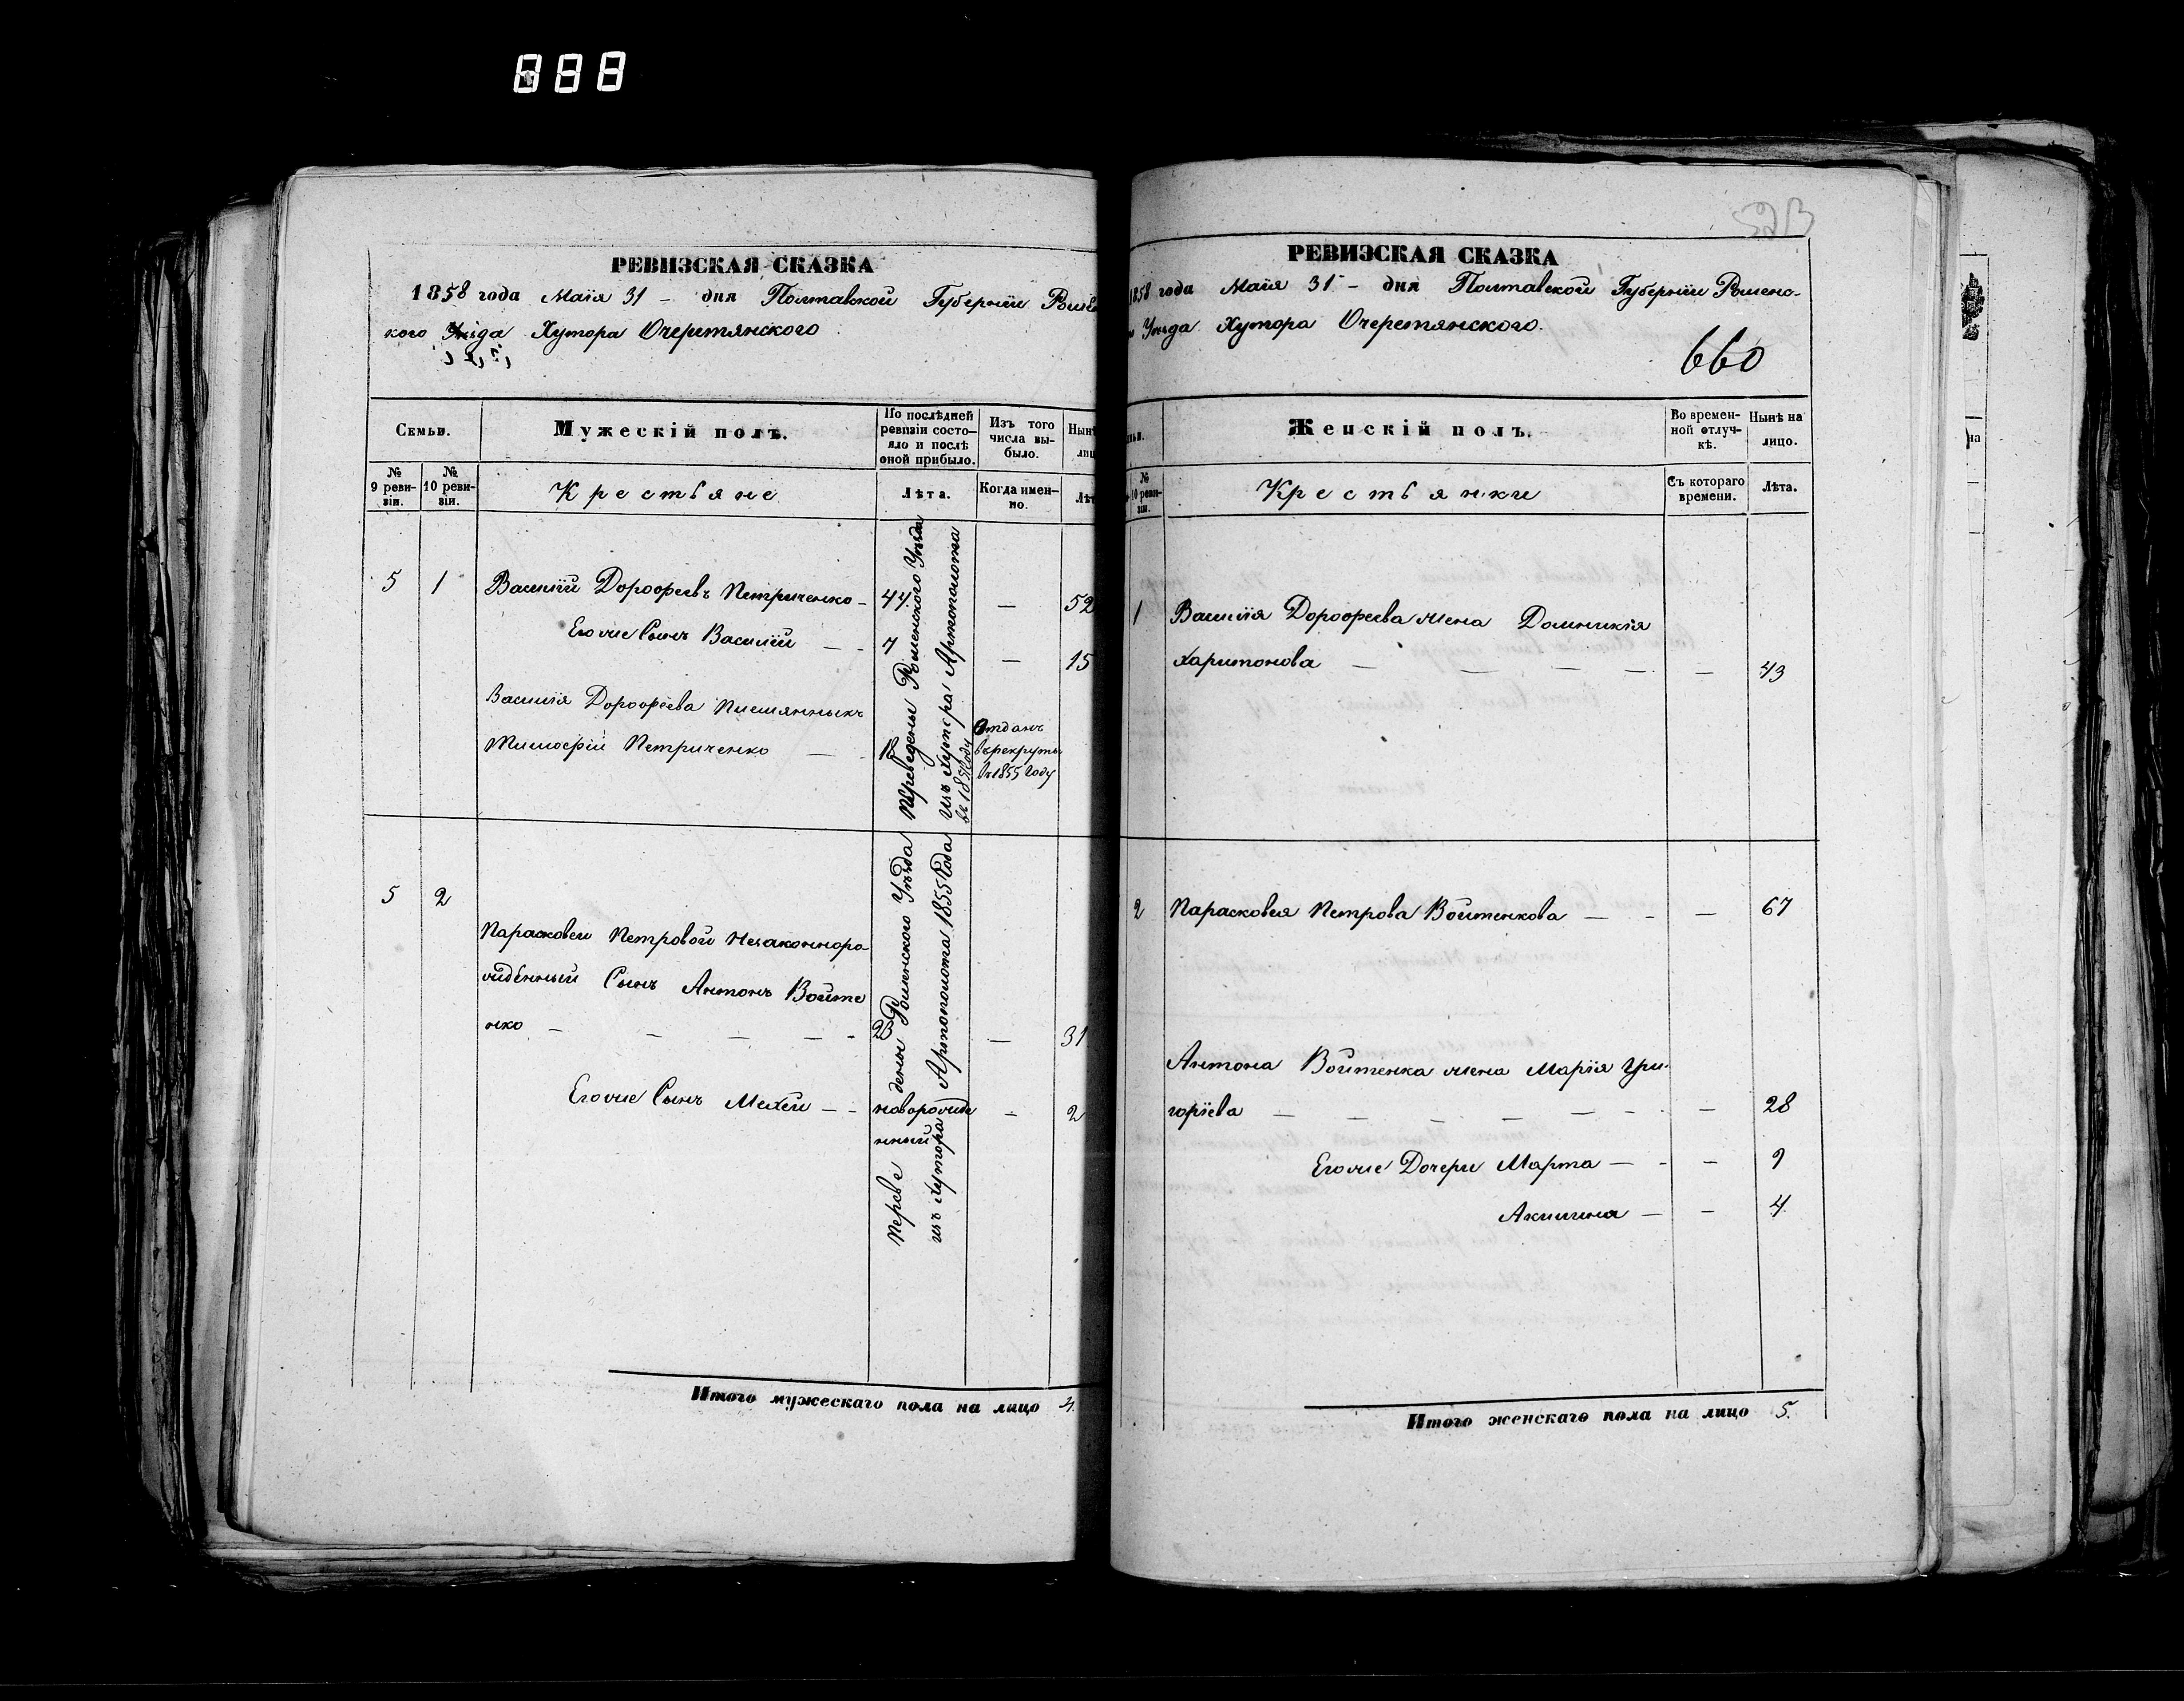 888
РЕВИЗСКАЯ СКАЗКА
1858 года Маія 31 – дня Полтавской Губерніи Ромен
кого Уѣзда Хутора Очеретянского
Семьи.
Мужескій полъ.
По послѣдней ревизіи состо-
яло и послѣ
оной прибыло.
Изъ того
числа вы-
было.
Нынѣ
лиц
№
9 реви-
зіи.
№
10 реви-
зіи.
Крестьяне
Лѣта.
Когда имен-
но.
Лѣт
5 1 Василій Дорофеевъ Петриченко – 44 — 52
Егоже Сынъ Василій — - 7 — 15
Василія Дорофеева племянныкъ
Тимофей Петриченко — - 18
Отданъ
в рекруты
в 1855 году
Переведены Роменского Уѣзда
изъ Хутора Артополота
въ 185 году
5 2
Парасковеи Петровой Незаконноро
жденный Сынъ Антонъ Войте
нко – — — — - 23 — 31
Егоже Сынъ Мехей – - новорожде – 2
нный
Переведены Роменского Уѣзда
изъ Хутора Артополота 1855 Года
Итого мужескаго пола на лицо 4.
РЕВИЗСКАЯ СКАЗКА
1858 года Маія 31 – дня Полтавской Губерніи Роменс-
Уѣзда Хутора Очеретянского.
660
Женскій полъ.
Во времен-
ной отлуч-
кѣ.
Нынѣ на
лицо.
№
10 реви-
зіи.
Крестьянки
Съ котораго
времени.
Лѣта.
1 Василія Дорофеева жена Домникія
Харитонова — — — — — 43
2 Парасковея Петрова Войтенкова — - — 67
Антона Войтенка жена Марія Гри-
горіева — — — — — - — 28
Егоже Дочери Марта — - — 9
Акилина — — 4
Итого женскаго пола на лицо 5.
на